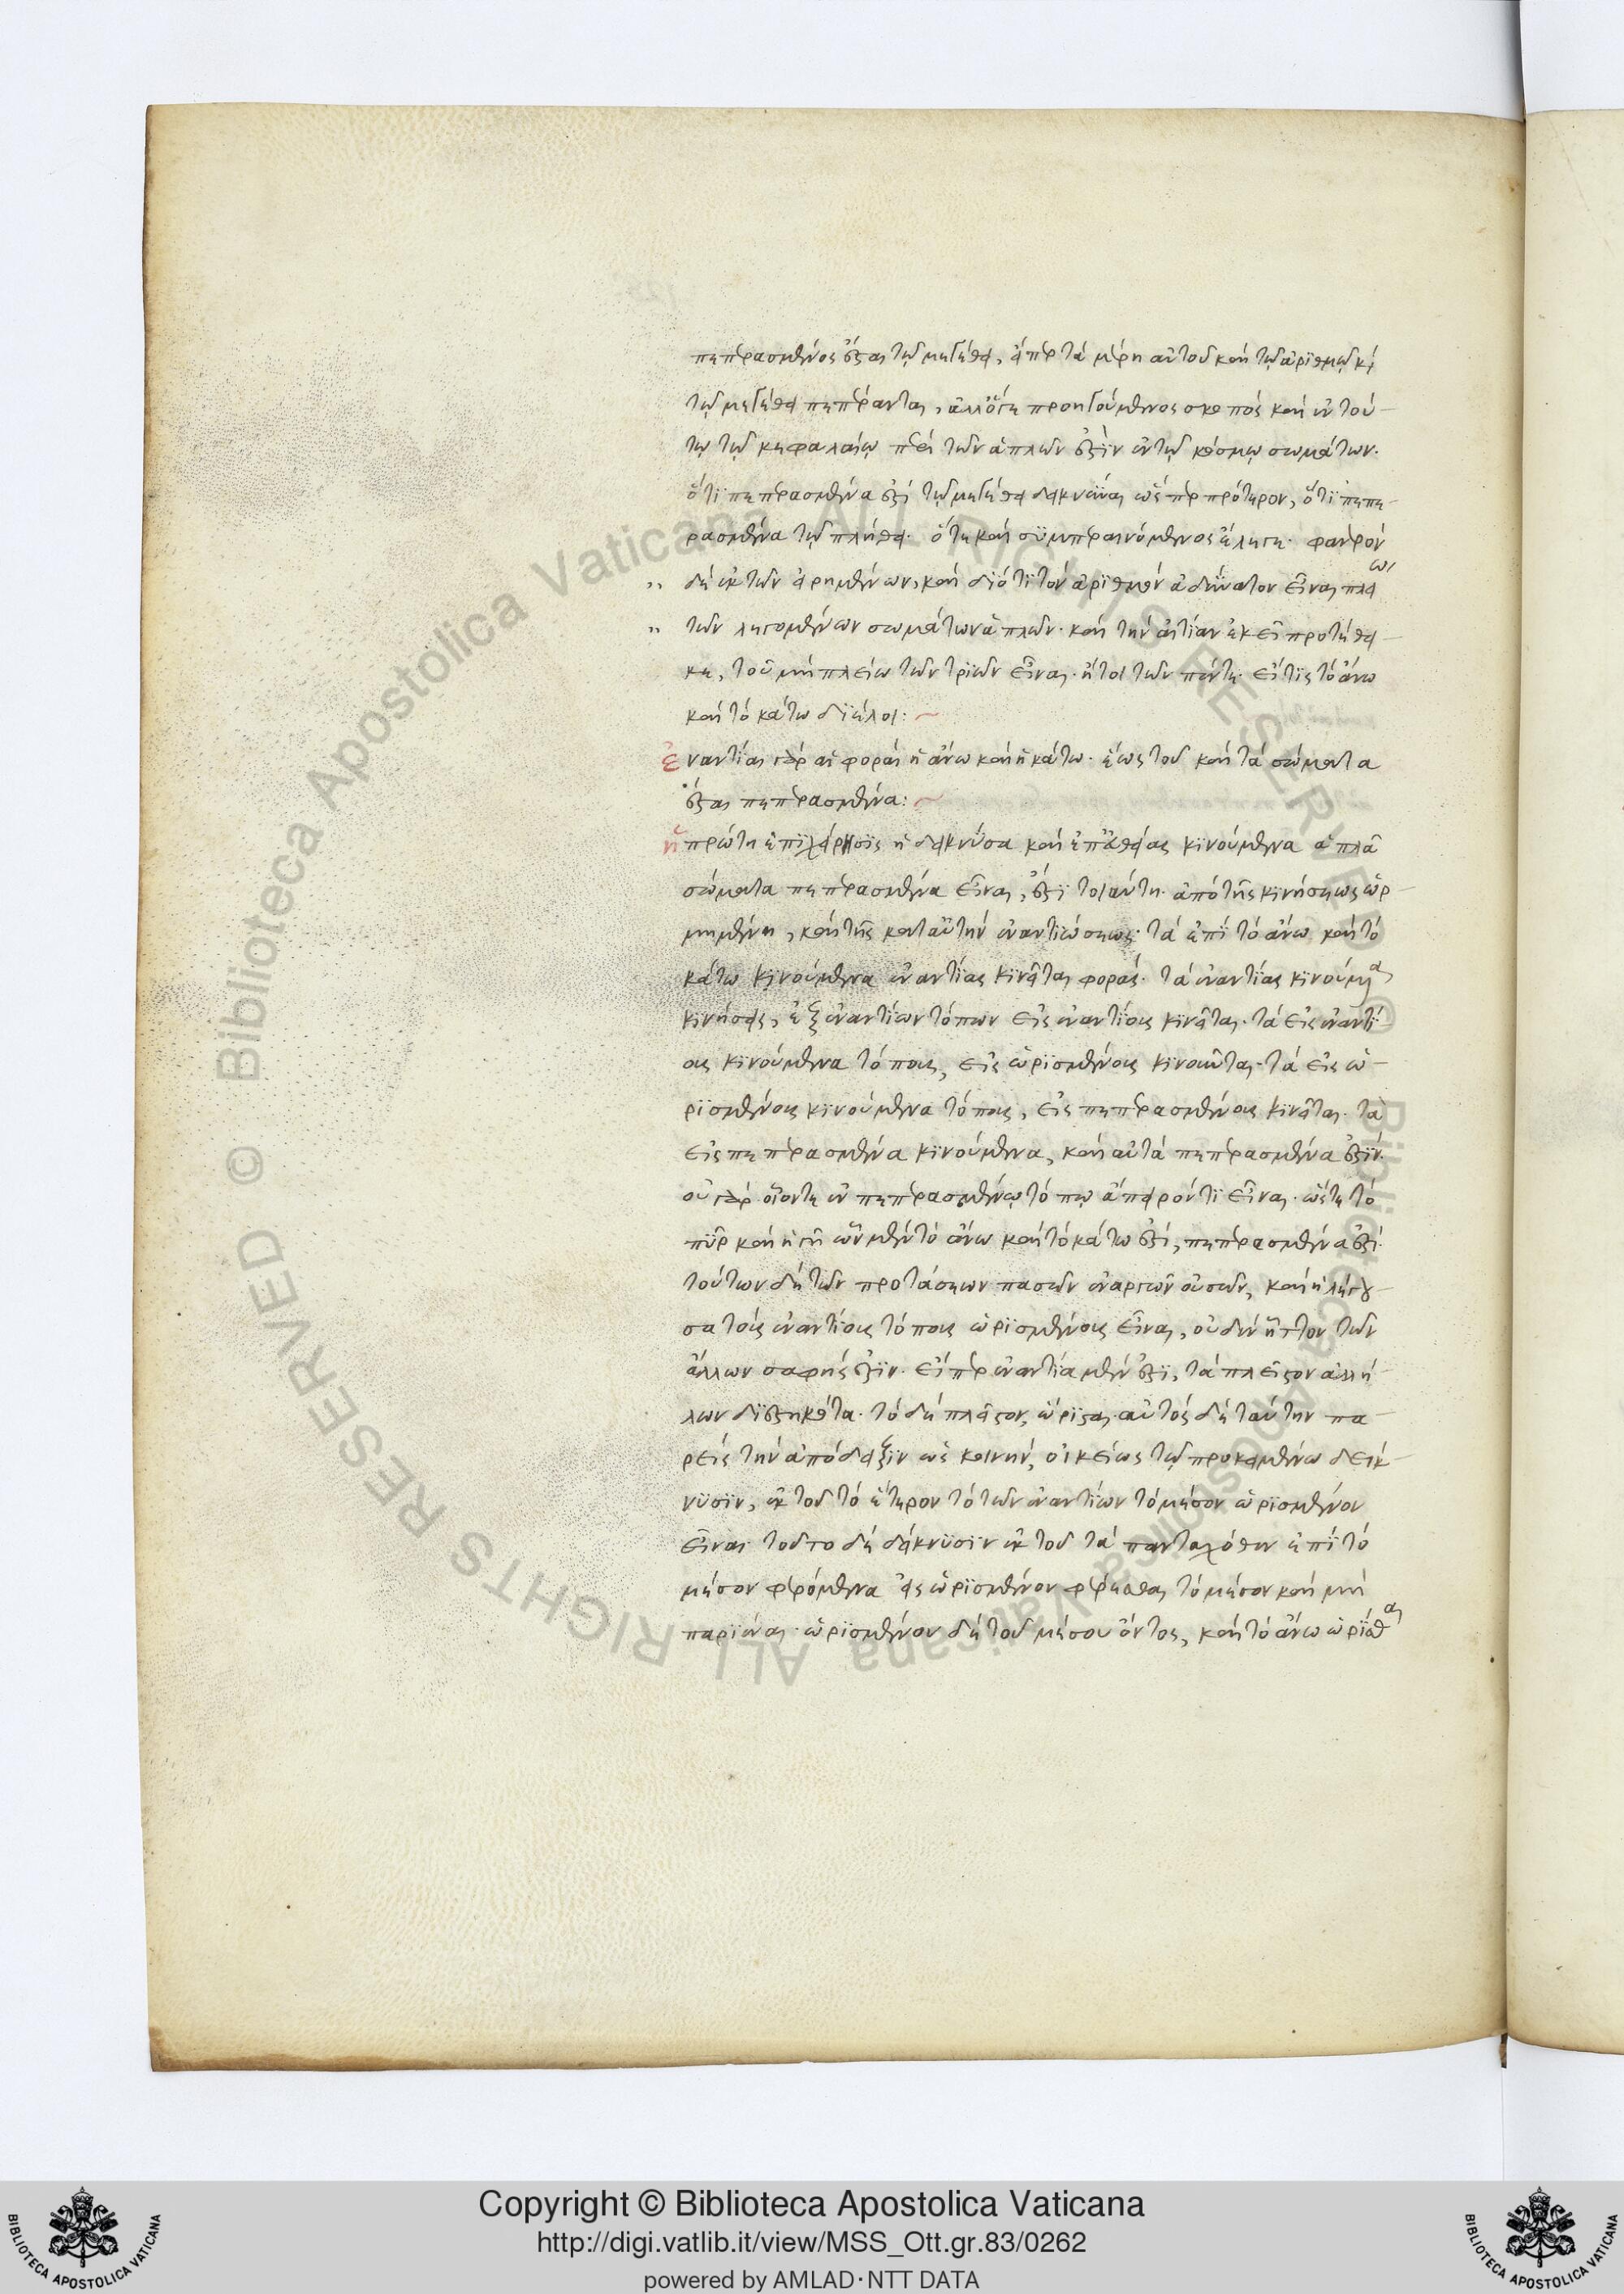 πεπερασμένος ἔσται τῷ μεγέθει, εἴπερ τὰ μέρη αὐτοῦ καὶ τῷ ἀριθμῷ καὶ
τῷ μεγέθει πεπέρανται, ἀλλ' ὅγε προηγούμενος σκοπὸς καὶ ἐν τού-
τῳ τῷ κεφαλαίῳ περὶ τῶν ἁπλῶν ἐστὶν ἐν τῷ κόσμῳ σωμάτων.
ὅτι πεπερασμένα ἐστὶ τῷ μεγέθει δεικνύναι ὥσπερ πρότερον, ὅτι πεπε-
ρασμένα τῷ πλήθει. ὅτε καὶ συμπεραινόμενος ἔλεγε. φανερὸν
" δὲ ἐκ τῶν εἰρημένων, καὶ διότι τὸν ἀριθμὸν ἀδύνατον εἶναι πλείω
" τῶν λεγομένων σωμάτων ἁπλῶν. καὶ τὴν αἰτίαν ἐκεῖ προτέθει-
κε, τοῦ μὴ πλείω τῶν τριῶν εἶναι. ἤτοι τῶν πέντε. εἴ τις τὸ ἄνω
καὶ τὸ κάτω διέλοι:
ἐναντίαι γὰρ αἱ φοραὶ ἡ ἄνω καὶ ἡ κάτω. ἕως τοῦ καὶ τὰ σώματα
ἔσται πεπερασμένα:
ἡ πρώτη ἐπιχείρησις ἡ δεικνῦσα καὶ ἐπ' εὐθείας κινούμενα ἁπλᾶ
σώματα πεπερασμένα εἶναι, ἐστὶ τοιαύτη. ἀπὸ τῆς κινήσεως ὡρ-
μημένη, καὶ τῆς κατ' αὐτὴν ἐναντιώσεως. τὰ ἐπὶ τὸ ἄνω καὶ τὸ
κάτω κινούμενα ἐναντίας κινεῖται φοράς. τὰ ἐναντίας κινούμενα
κινήσεις, ἐξ ἐναντίων τόπων εἰς ἐναντίους κινεῖται. τὰ εἰς ἐναντί-
ους κινούμενα τόπους, εἰς ὡρισμένους κινοῦνται. τὰ εἰς ὡ-
ρισμένους κινούμενα τόπους, εἰς πεπερασμένους κινεῖται. τὰ
εἰς πεπερασμένα κινούμενα, καὶ αὐτὰ πεπερασμένα ἐστίν.
οὐ γὰρ οἷόντε ἐν πεπερασμένῳ τόπῳ ἄπειρόν τι εἶναι. ὥστε τὸ
πῦρ καὶ ἡ γῆ ὧν μὲν τὸ ἄνω καὶ τὸ κάτω ἐστί, πεπερασμένα ἐστί.
τούτων δὲ τῶν προτάσεων πασῶν ἐναργῶν οὐσῶν, καὶ ἡ λέγου-
σα τοὺς ἐναντίους τόπους ὡρισμένους εἶναι, οὐδὲν ἧττον τῶν
ἄλλων σαφής ἐστιν. εἴπερ ἐναντία μέν ἐστι, τὰ πλεῖστον ἀλλή-
λων διεστηκότα. τὸ δὲ πλεῖστον, ὥρισται. αὐτὸς δὲ ταύτην πα-
ρεὶς τὴν ἀπόδειξιν ὡς κοινήν, οἰκείως τῷ προκειμένῳ δείκ-
νυσιν, ἐκ τοῦ τὸ ἕτερον τὸ τῶν ἐναντίων τὸ μέσον ὡρισμένον
εἶναι τοῦτο δὲ δείκνυσιν ἐκ τοῦ τὰ πανταχόθεν ἐπὶ τὸ
μέσον φερόμενα εἰς ὡρισμένον φέρεσθαι τὸ μέσον καὶ μὴ
παριέναι. ὡρισμένου δὲ τοῦ μέσου ὄντος, καὶ τὸ ἄνω ὡρίσθαι
Copyright © Biblioteca Apostolica Vaticana
http://digi.vatlib.it/view/MSS_Ott.gr.83/0262
powered by AMLAD·NTT DATA